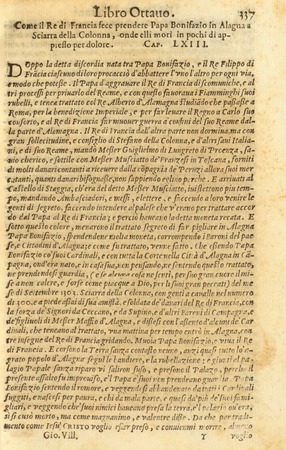 Libro Ottavo. 337
Come il Re di Francia fece prendere Papa Bonifazio in Alagna a
Sciarra della Colonna, onde elli morì in pochi dì ap-
presso per dolore. CAP. LXIII.
DOppo la detta discordia nata tra Papa Bonifazio, e il Re Filippo di
Francia ciascuno di loro procacciò d'abbattere l'uno l'altro per ogni via,
e modo che potesse. Il Papa d'aggravare il Re di Francia di scomuniche, e al-
tri processi per privarlo del Reame, e con questo favorava i Fiamminghi suoi
rubelli, e tenea trattato col Re Alberto d'Alamagna studiandolo che passasse a
Roma, per la benedizione Imperiale, e per far levare il Regno a Carlo suo
consorto, e al Re di Francia far muovere guerra a' confini del suo Reame dal-
la parte d'Alamagna. Il Re di Francia dall'altra parte non dormìa, ma con
gran sollecitudine, e consiglio di Stefano della Colonna, e d'altri savi Italia-
ni, e di suo Reame, mandò Messer Guiglielmo di Lungreto di Proenza, sa-
vio cherico, e sottile con Messer Musciatto de' Franzesi in Toscana, forniti
di molti danari contanti e
tanti, quanti danari bisognasse, non sappiendo eglino perchè. E arrivati al
Castello di Staggia, ch'era del detto Messer Musciatto, vi stettono più tem-
po, mandando
genti di segreto, faccendo intendere al palese che v'erano per trattare accordo
dal Papa al Re di Francia; e perciò haveano la detta moneta recata. E
sotto questo colore, menarono il trattato segreto di far pigliare in Alagna
Papa Bonifazio, spendendone molta moneta, corrompendo i baroni del pae-
se, e Cittadini d'Alagna; e come fu trattato, venne fatto. Che essendo Papa
Bonifazio co' suoi Cardinali, e con tutta la Corte nella Città d'Alagna in Cam-
pagna, ond'era nato, e in casa sua, non pensando, nè sentendo questo trattato,
nè prendendosi guardia,
a non calere, e forse come piacque a Dio, per li suoi gran peccati) del me-
se di Settembre 1303. Sciarra della Colonna, con genti a cavallo in numero
di 300. e a piede assai di sua amistà, e soldata de' danari del Re di Francia, con
la forza de' Signori da Ceccano, e da Supino, e d'altri Baroni di Campagna,
de' figliuoli di Messer Maffio d'Alagna, e dissesi con l'assento d'alcuno de' Car-
dinali, che teneano al trattato, una mattina per tempo entrò in Alagna, con
tre insegne del Re di Francia gridando. Muoia Papa Bonifazio, e viva il Re
di Francia. E corsono la Terra senza contasto neuno, anzi quasi tutto lo in-
grato popolo d'Alagna seguì le bandiere, e la rubellazione; e giunti al pa-
lagio Papale senza riparo vi saliron suso, e presono il Palazo, perchè il
presente assalto fu improviso, e 'l Papa e' suoi non prendeano guardia. Papa
Bonifazio sentendo il romore, e veggendosi abbandonato da tutti i Cardinali
fuggiti, e nascosi per paura, e chi da mala parte, e quasi da' più de' suoi fami-
gliari, e veggendo che' suoi nimici haveano presa la terra, e 'l palagio ov'era,
si si cusò morto, ma come magnanimo, e valente disse. Da che per tra-
dimento come Iesù CRISTO voglio esser preso, e convienmi morire, almeno
Gio. Vill. Y voglio